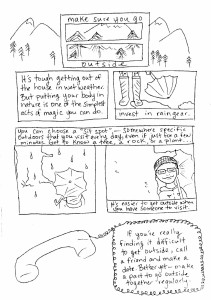 make sure you go
outside
It's tough getting out of
the house in wet weather.
But putting your body in
nature is one of the simplest
acts of magic you can do.
invest in raingear.
You can choose a "sit spot" — somewhere specific
outdoors that you visit every day, even if just for a few
minutes. Get to know a tree, a rock, or a plant...
It's easier to get outside when
you have someone to visit.
If you're really
finding it difficult
to get outside, call
a friend and make a
date. Better yet - make
a pact to go outside
together regularly